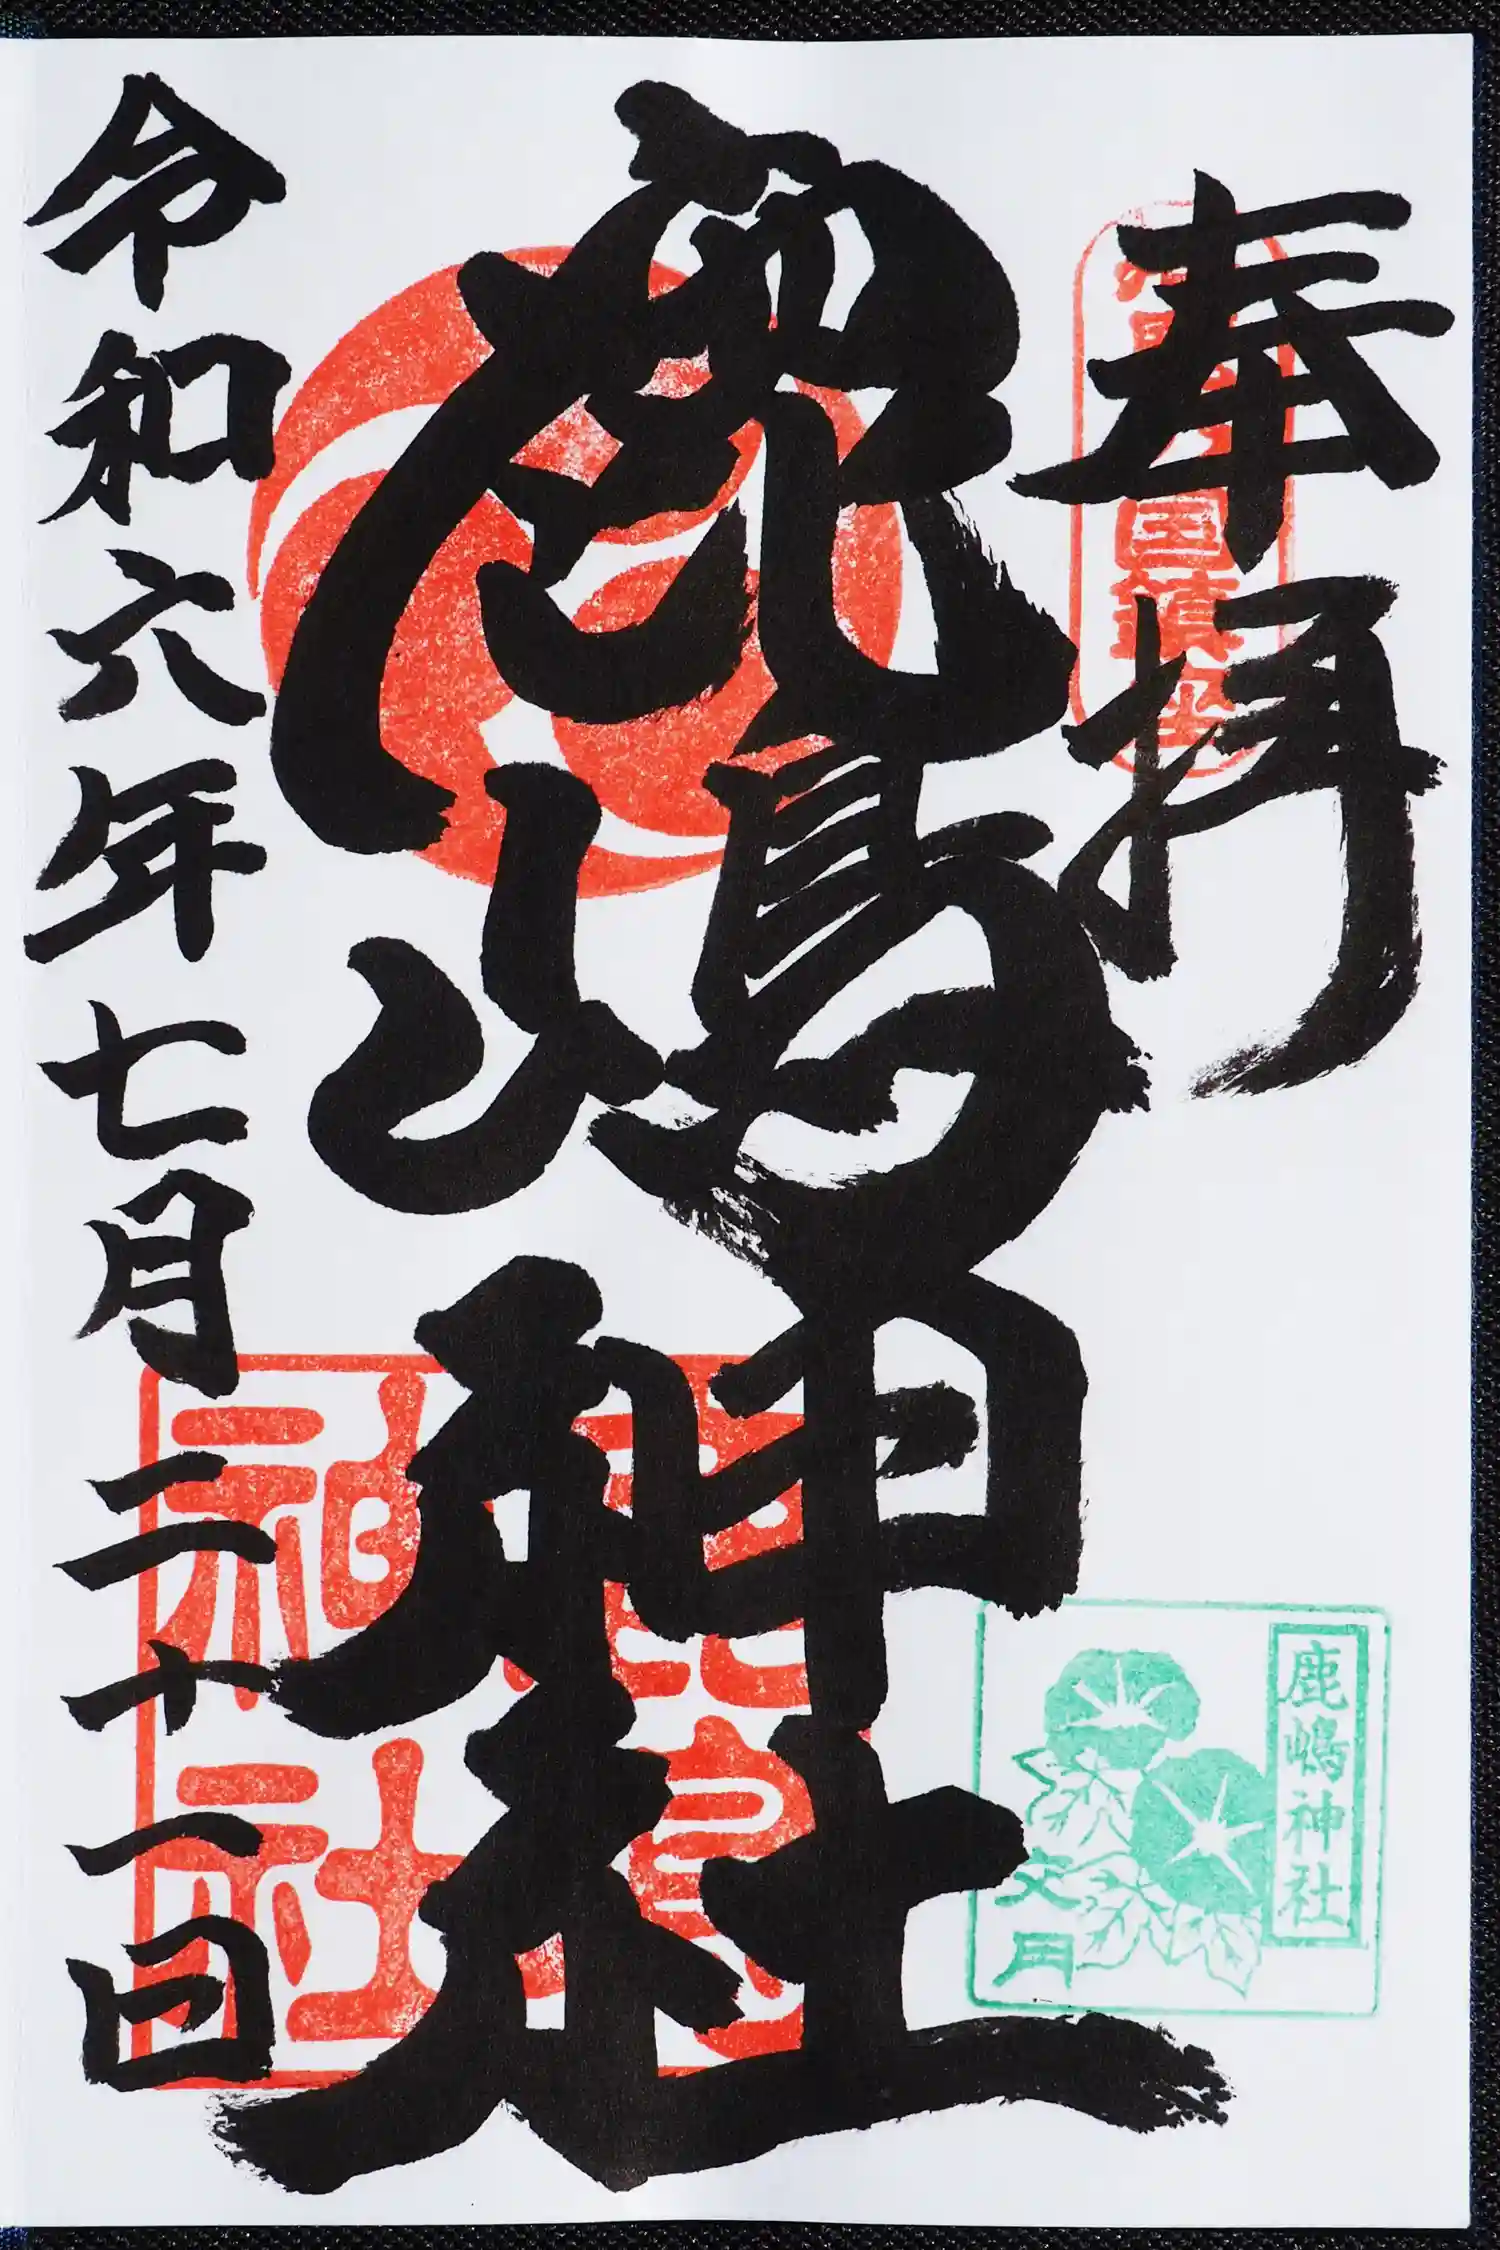 奉拝
鹿嶋神社
令和六年七月二十一日
鹿嶋神社
文月
神社